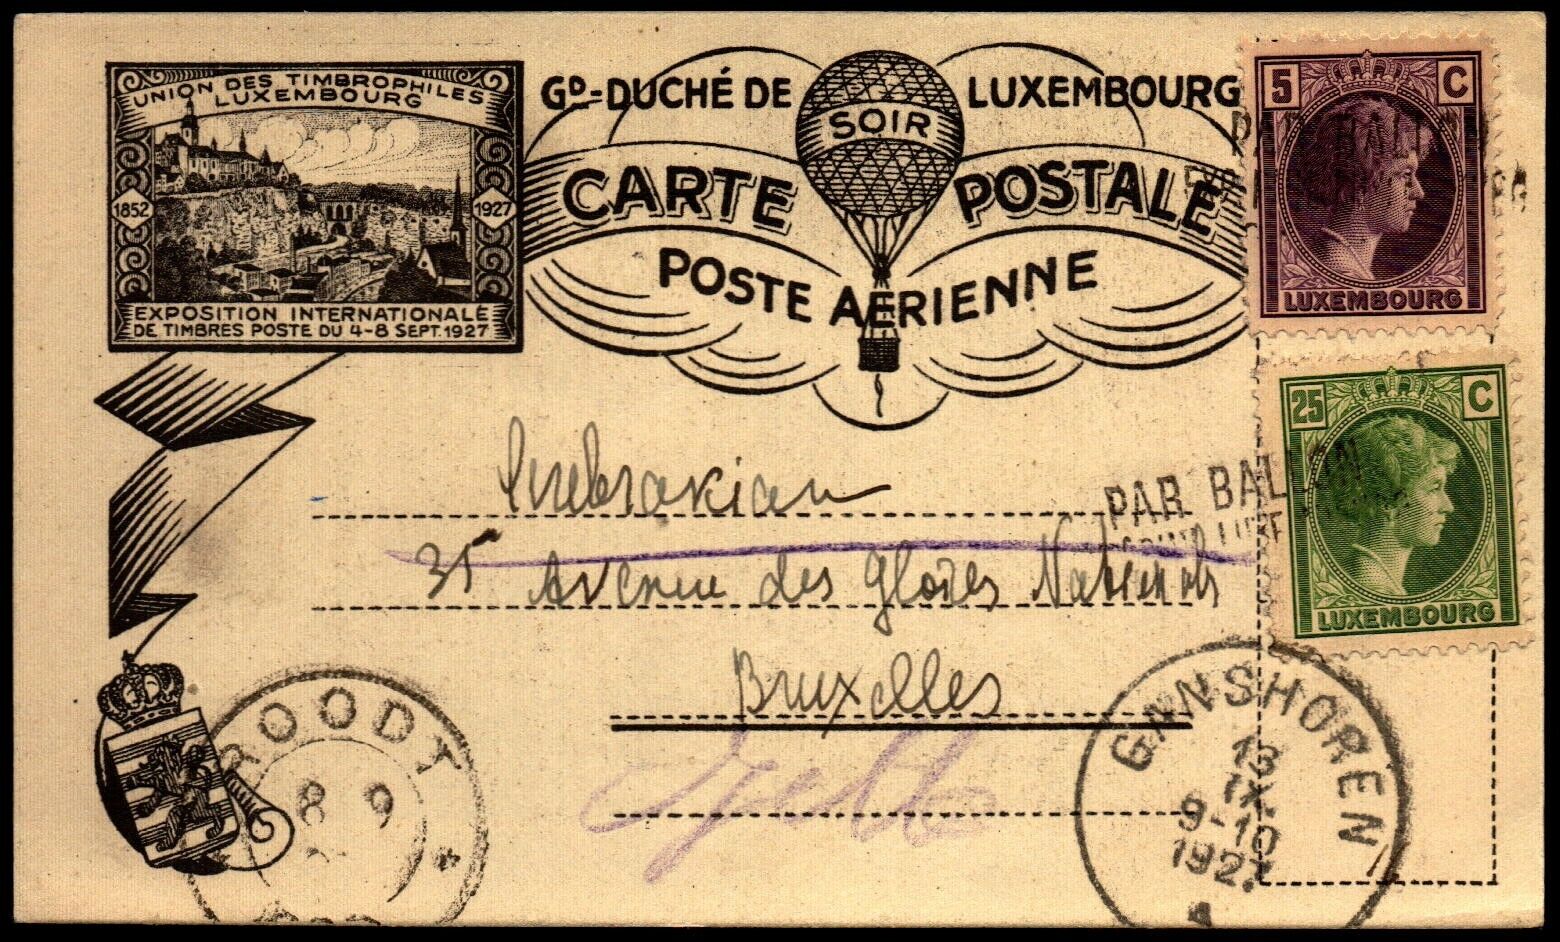 UNION DES TIMBROPHILES
LUXEMBOURG
1852
1927
EXPOSITION INTERNATIONALE
DE TIMBRES POSTE DU 4-8 SEPT. 1927
GD-DUCHÉ DE LUXEMBOURG
SOIR
CARTE POSTALE
POSTE AÉRIENNE
5 C
LUXEMBOURG
25 C
LUXEMBOURG
PAR BALLON
PAR BALLON
35 Avenue des gloires Nationals
Bruxelles
Jette
ROODT
8 9
GANSHOREN
13
IX.
9-10
1927